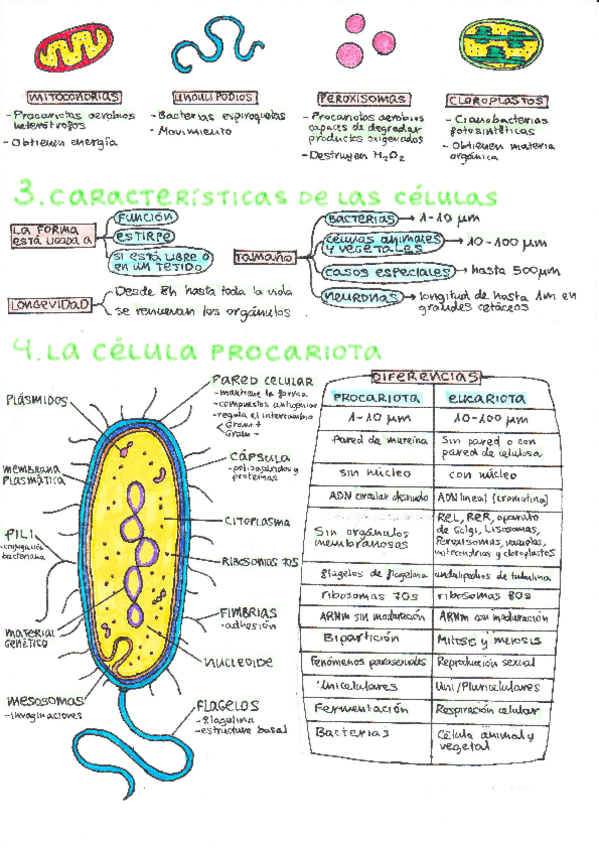 MITOCONDRIAS
- Procariotas aerobios
heterótrofos
- Obtienen energía
UNDULIPODIOS
- Bacterias espiroquetas
- Movimiento
PEROXISOMAS
- Procariotas aerobios
capaces de degradar
productos oxigenados
- Destruyen H2O2
CLOROPLASTOS
- Cianobacterias
fotosintéticas
- Obtienen materia
orgánica
3. CARACTERÍSTICAS DE LAS CÉLULAS
LA FORMA
ESTÁ LIGADA A
FUNCIÓN
ESTIRPE
SI ESTÁ LIBRE O
EN UN TEJIDO
TAMAÑO
BACTERIAS → 1-10 μm
CÉLULAS ANIMALES
Y VEGETALES → 10-100 μm
CASOS ESPECIALES → hasta 500μm
NEURONAS → longitud de hasta 1m en
grandes cetáceos
LONGEVIDAD
Desde 8h hasta toda la vida
se renuevan los orgánulos
4. LA CÉLULA PROCARIOTA
PLÁSMIDOS
MEMBRANA
PLASMÁTICA
PILI
- conjugación
bacteriana
MATERIAL
GENÉTICO
MESOSOMAS
- invaginaciones
PARED CELULAR
- mantiene la forma
- compuestos antigénicos
- regula el intercambio
Gram +
Gram -
CÁPSULA
- polisacáridos y
proteínas
CITOPLASMA
RIBOSOMAS 70S
FIMBRIAS
- adhesión
NUCLEOIDE
FLAGELOS
- flagelina
- estructura basal
DIFERENCIAS
PROCARIOTA EUCARIOTA
1-10 μm 10-100 μm
Pared de mureína Sin pared o con
pared de celulosa
sin núcleo con núcleo
ADN circular desnudo ADN lineal (cromatina)
Sin orgánulos
membranosos
REL, RER, aparato
de Golgi, Lisosomas,
Peroxisomas, vacuolas,
mitocondrias y cloroplastos
flagelos de flagelina undulipodios de tubulina
ribosomas 70s ribosomas 80s
ARNm sin maduración ARNm con maduración
Bipartición Mitosis y meiosis
Fenómenos parasexuales Reproducción sexual
Unicelulares Uni/Pluricelulares
Fermentación Respiración celular
Bacterias Célula animal y
vegetal